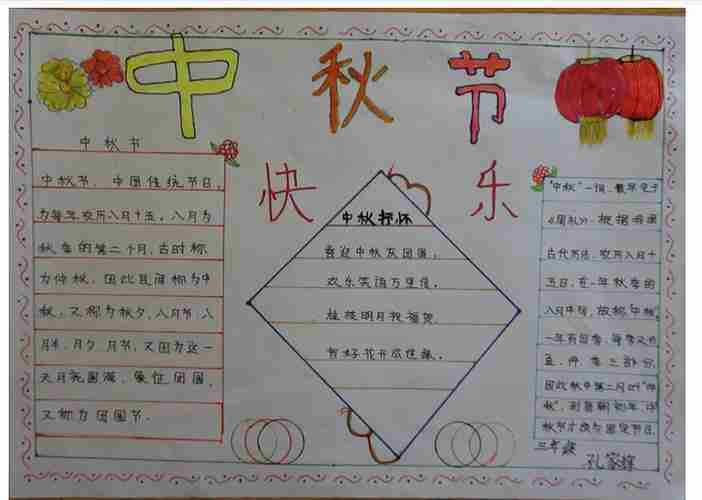 中秋节
快乐
中秋节
中秋节，中国传统节日，
为每年农历八月十五，八月为
秋季的第二个月，古时称
为仲秋，因此民间称为中
秋，又称为秋夕，八月节，八
月半，月夕，月节，又因为这一
天月亮圆满，象征团圆，
又称为团圆节。
中秋抒怀
喜迎中秋庆团圆，
欢乐笑语万里传。
桂枝明月祝福贺，
花开
"中秋"一词，最早见于
《周礼》。根据我国
古代历法，农历八月十
五日，在一年秋季的
八月中旬，故称"中秋"
一年有四季，每季又分
孟、仲、季三部分，
因此秋中第二月叫"仲
秋"，到唐朝初年，中
秋节才成为固定节日。
三年级